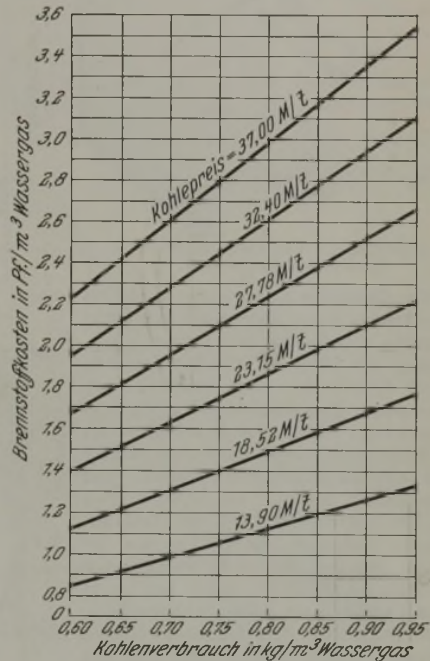 Brennstoffkosten in Pf/m³ Wassergas
3,6
3,4
3,2
3,0
2,8
2,6
2,4
2,2
2,0
1,8
1,6
1,4
1,2
1,0
0,8
0
Kohlepreis=37,00 M/t
32,40 M/t
27,78 M/t
23,15 M/t
18,52 M/t
13,90 M/t
0,60 0,65 0,70 0,75 0,80 0,85 0,90 0,95
Kohlenverbrauch in kg/m³ Wassergas